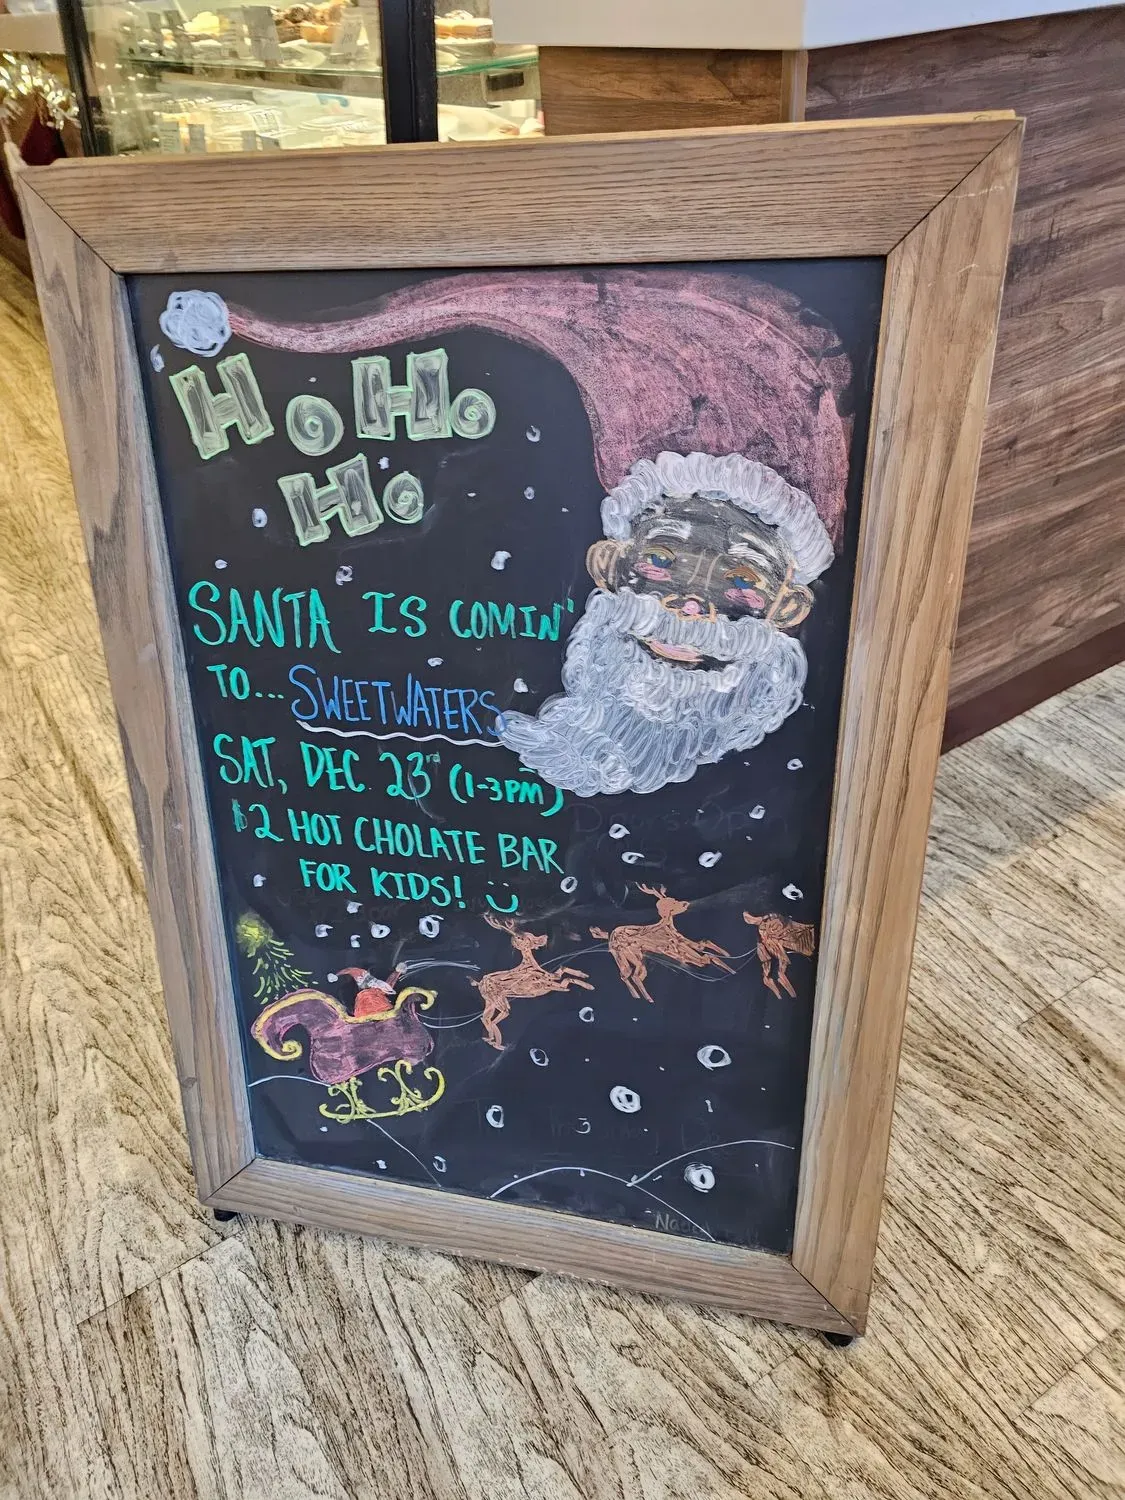 Ho Ho
Ho
SANTA IS COMIN'
TO... SWEETWATERS
SAT, DEC. 23rd (1-3PM)
$2 HOT CHOLATE BAR
FOR KIDS!